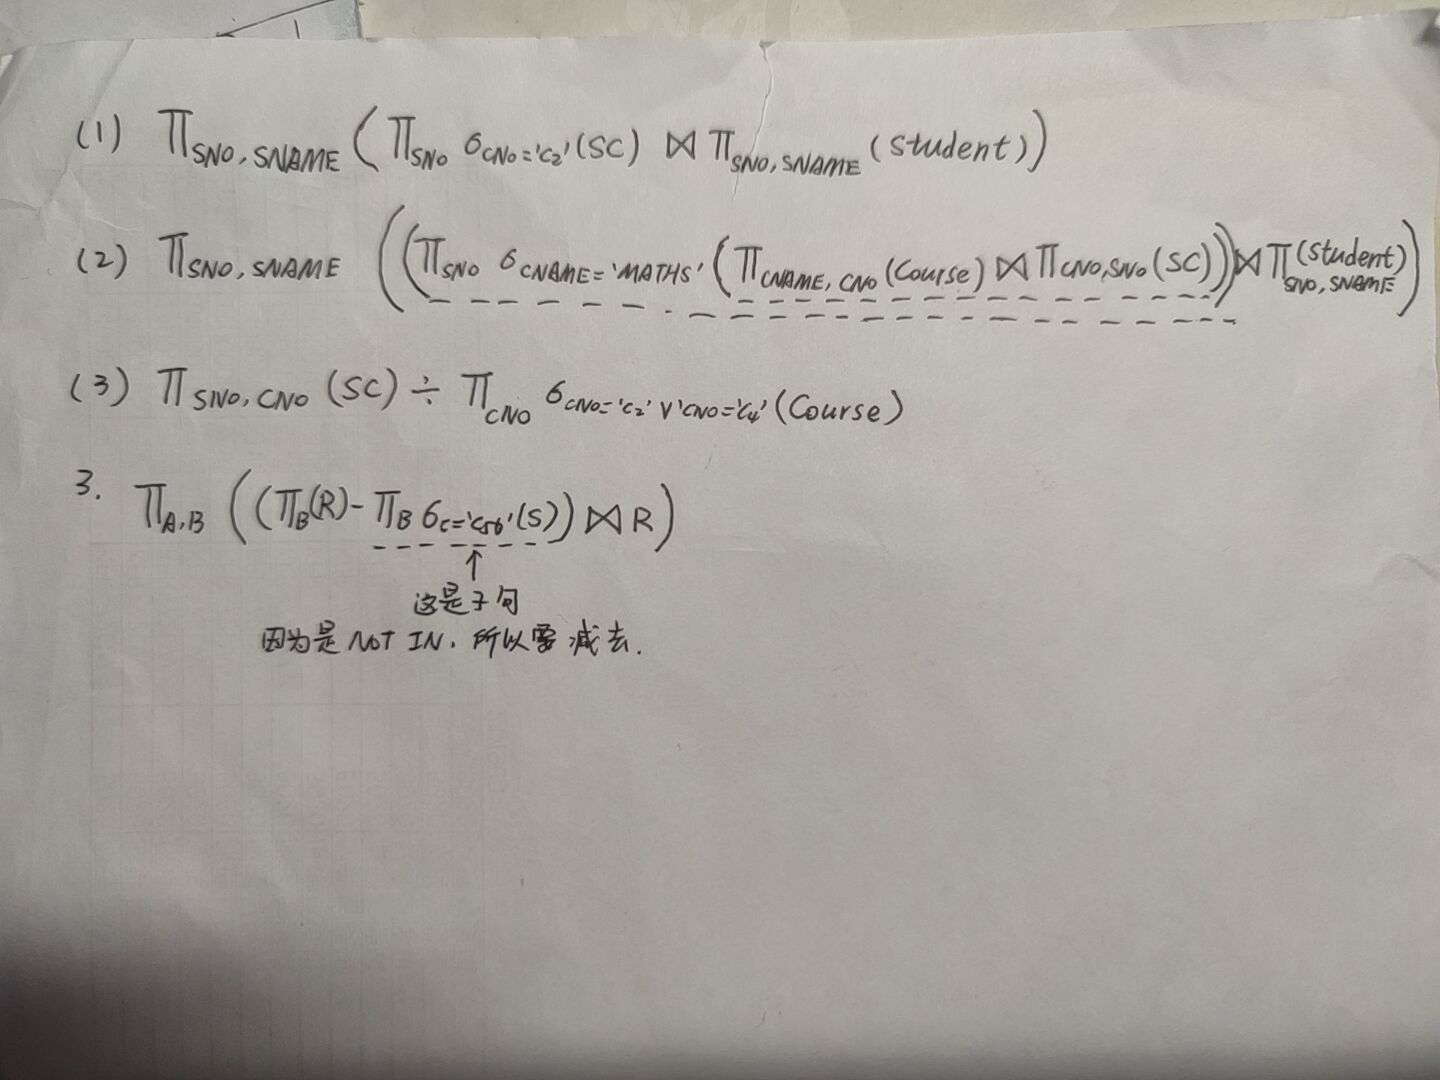 (1) Π SNO,SNAME ( Π SNO σ CNO='C2' (SC) ⋈ Π SNO,SNAME (Student) )
(2) Π SNO,SNAME ( ( Π SNO σ CNAME='MATHS' ( Π CNAME,CNO (Course) ⋈ Π CNO,SNO (SC) ) ) ⋈ Π SNO,SNAME (Student) )
(3) Π SNO,CNO (SC) ÷ Π CNO σ CNO='C2' ∨ 'CNO='C4' (Course)
3. Π A,B ( ( Π B (R) - Π B σ C='C56' (S) ) ⋈ R )
这是子句
因为是 NOT IN, 所以需减去.